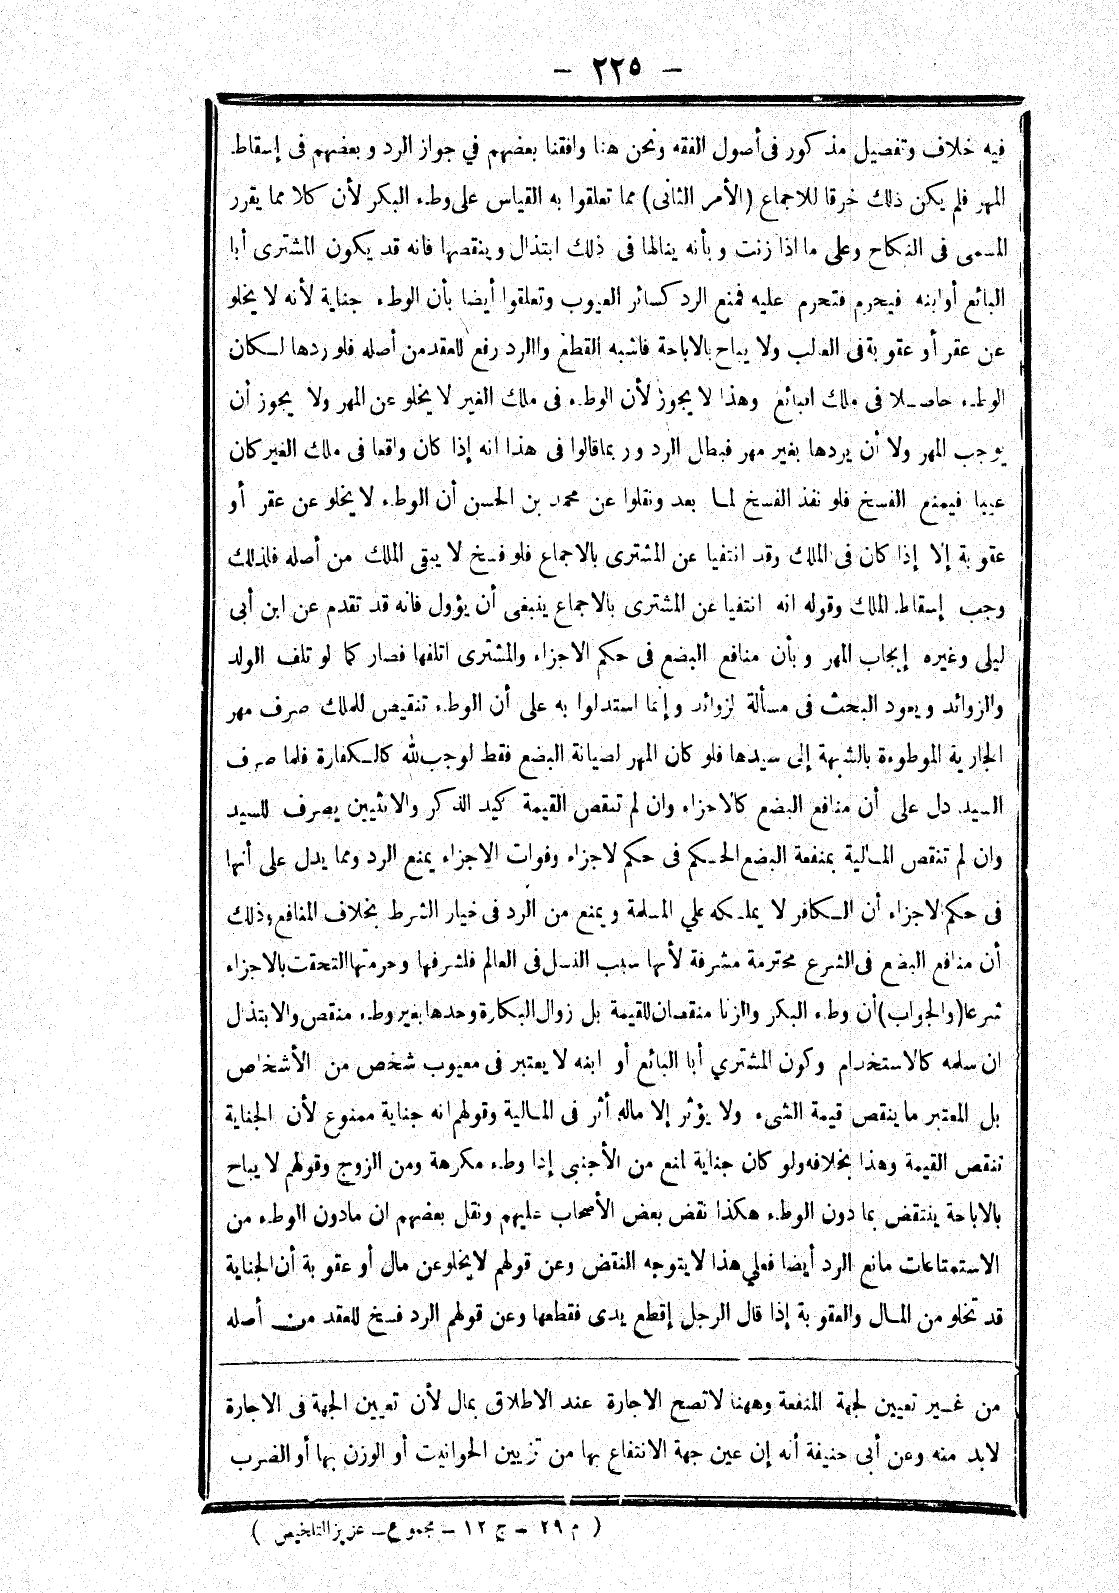 — ٢٢٥ —
فيه خلاف وتفصيل مذكور فى أصول الفقه ونحن هنا وافقنا بعضهم في جواز الرد و بعضهم فى إسقاط
المهر فلم يكن ذلك خرقا للاجماع (الأمر الثانى) مما تعلقوا به القياس على وطء البكر لأن كلا مما يقرر
المسمى فى النكاح وعلى ما اذا زنت و بأنه ينالها فى ذلك ابتذال و ينقصها فانه قد يكون المشترى أبا
البائع أو ابنه فيحرم فتحرم عليه فمنع الرد كسائر العيوب وتعلقوا أيضا بأن الوطء جناية لأنه لا يخلو
عن عقر أو عقو بة فى الغالب ولا يباح بالاباحة فاشبه القطع واالرد رفع للعقد من أصله فلو ردها لكان
الوطء حاصلا فى ملك البائع وهذا لا يجوز لأن الوطء فى ملك الغير لا يخلو عن المهر ولا يجوز أن
يوجب المهر ولا أن يردها بغير مهر فبطل الرد و ر بما قالوا فى هذا انه إذا كان واقعا فى ملك الغير كان
عيبا فيمنع الفسخ فلو نفذ الفسخ لما بعد ونقلوا عن محمد بن الحسن أن الوطء لا يخلو عن عقر أو
عقو بة إلا إذا كان فى الملك وقد انتفيا عن المشترى بالاجماع فلو فسخ لا يبقى الملك من أصله فلذلك
وجب إسقاط الملك وقوله انه انتفيا عن المشترى بالاجماع ينبغى أن يؤول فانه قد تقدم عن ابن أبى
ليلى وغيره إيجاب المهر و بأن منافع البضع فى حكم الاجزاء والمشترى اتلفها فصار كما لو تلف الولد
والزوائد و يعود البحث فى مسألة لزوائد و إنما استدلوا به على أن الوطء تنقيص للملك صرف مهر
الجارية الموطوءة بالشبهة إلى سيدها فلو كان المهر لصيانة البضع فقط لوجب لله كالكفارة فلما صرف
السيد دل على أن منافع البضع كالاجزاء وان لم تنقص القيمة كيد الذكر والانثيين يصرف للسيد
وان لم تنقص المالية بمنفعة البضع الحكم فى حكم لاجزاء وفوات الاجزاء يمنع الرد ومما يدل على أنها
فى حكم الاجزاء أن الكافر لا يملكه علي المسلمة و يمنع من الرد فى خيار الشرط بخلاف المنافع وذلك
أن منافع البضع فى الشرع محترمة مشرفة لأنها سبب النسل فى العالم فلشرفها وحرمتها التحقت بالاجزاء
شرعا (والجواب) أن وطء البكر والزنا منقصان للقيمة بل زوال البكارة وحدها بغير وطء منقص والابتذال
ان سلمه كالاستخدام وكون المشتري أبا البائع أو ابنه لا يعتبر فى معيوب شخص من الأشخاص
بل المعتبر ما ينقص قيمة الشىء ولا يؤثر إلا ماله أثر فى المالية وقولهم انه جناية ممنوع لأن الجناية
تنقص القيمة وهذا بخلافه ولو كان جناية لمنع من الأجنبى إذا وطء مكرهة ومن الزوج وقولهم لا يباح
بالاباحة ينتقض بما دون الوطء هكذا نقض بعض الأصحاب عليهم ونقل بعضهم ان مادون الوطء من
الاستمتاعات مانع الرد أيضا فعلي هذا لا يتوجه النقض وعن قولهم لا يخلو عن مال أو عقو بة أن الجناية
قد تخلو من المال والعقو بة إذا قال الرجل إقطع يدى فقطعها وعن قولهم الرد فسخ للعقد من أصله
من غير تعيين لجهة المنفعة وههنا لا تصح الاجارة عند الاطلاق بمال لأن تعيين الجهة فى الاجارة
لابد منه وعن أبى حنيفة أنه إن عين جهة الانتفاع بها من تزيين الحوانيت أو الوزن بها أو الضرب
( م ٢٩ – ج ١٢ – مجموع – عزيز التلخيص )